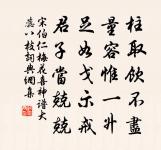 柱取飲不盡
量容惟一升
足如戈示戒
君子當兢兢
宋伯仁梅花喜神譜大
蕊八枝詞典網集